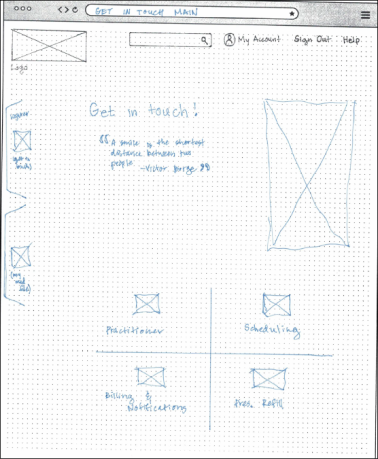 GET IN TOUCH MAIN
My Account Sign Out Help
Logo
Get in touch!
"A smile is the shortest
distance between two
people
-Victor Borge"
Practitioner
Scheduling
Billing &
Notifications
Pres. Refill